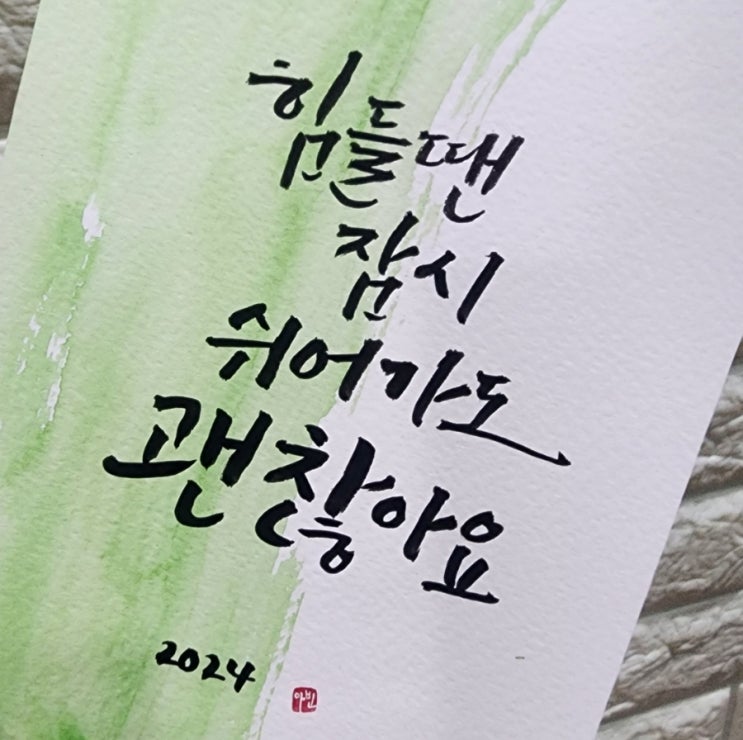 힘들땐
잠시
쉬어가도
괜찮아요
2024
아빈